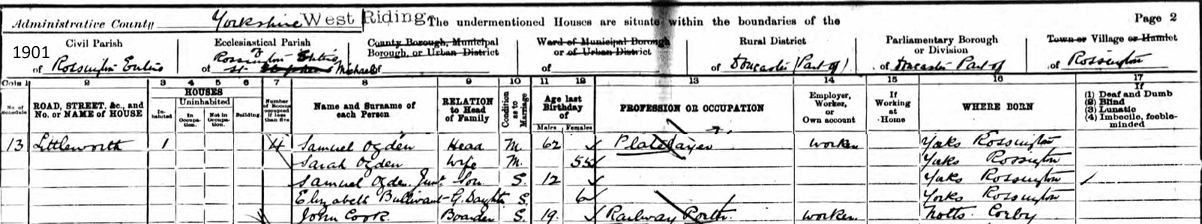 Administrative County Yorkshire West Riding The undermentioned Houses are situate within the boundaries of the Page 2
1901
Civil Parish of Rossington Entire
Ecclesiastical Parish of Rossington Entire St Michael
County Borough, Municipal Borough, or Urban District of
Ward of Municipal Borough or of Urban District of
Rural District of Doncaster (Part of)
Parliamentary Borough or Division of Doncaster Part of
Town or Village or Hamlet of Rossington
2 3 4 5 6 7 8 9 10 11 12 13 14 15 16 17
No. of Schedule
ROAD, STREET, &c., and No. or NAME of HOUSE
HOUSES
Inhabited
Uninhabited
In Occupation.
Not in Occupation.
Building
Number of Rooms occupied if less than five
Name and Surname of each Person
RELATION to Head of Family
Condition as to Marriage
Age last Birthday of
Males Females
PROFESSION OR OCCUPATION
Employer, Worker, or Own account
If Working at Home
WHERE BORN
If (1) Deaf and Dumb (2) Blind (3) Lunatic (4) Imbecile, feeble-minded
13 Littleworth 1 4 Samuel Ogden Head M. 62 Platelayer worker Yorks Rossington
Sarah Ogden Wife M. 55 Yorks Rossington
Samuel Ogden Junr. Son S. 12 Yorks Rossington
Elizabeth Bullivant G. Daughtr S. 6 Yorks Rossington
John Cook Boarder S. 19 Railway Porter worker Notts. Corby